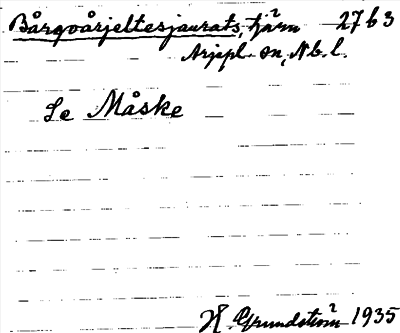 Bårgvårjeltesjaurats, tjärn 27 b 3
Arjepl. sn, Nb. l.
Se Måske
H. Grundström 1935